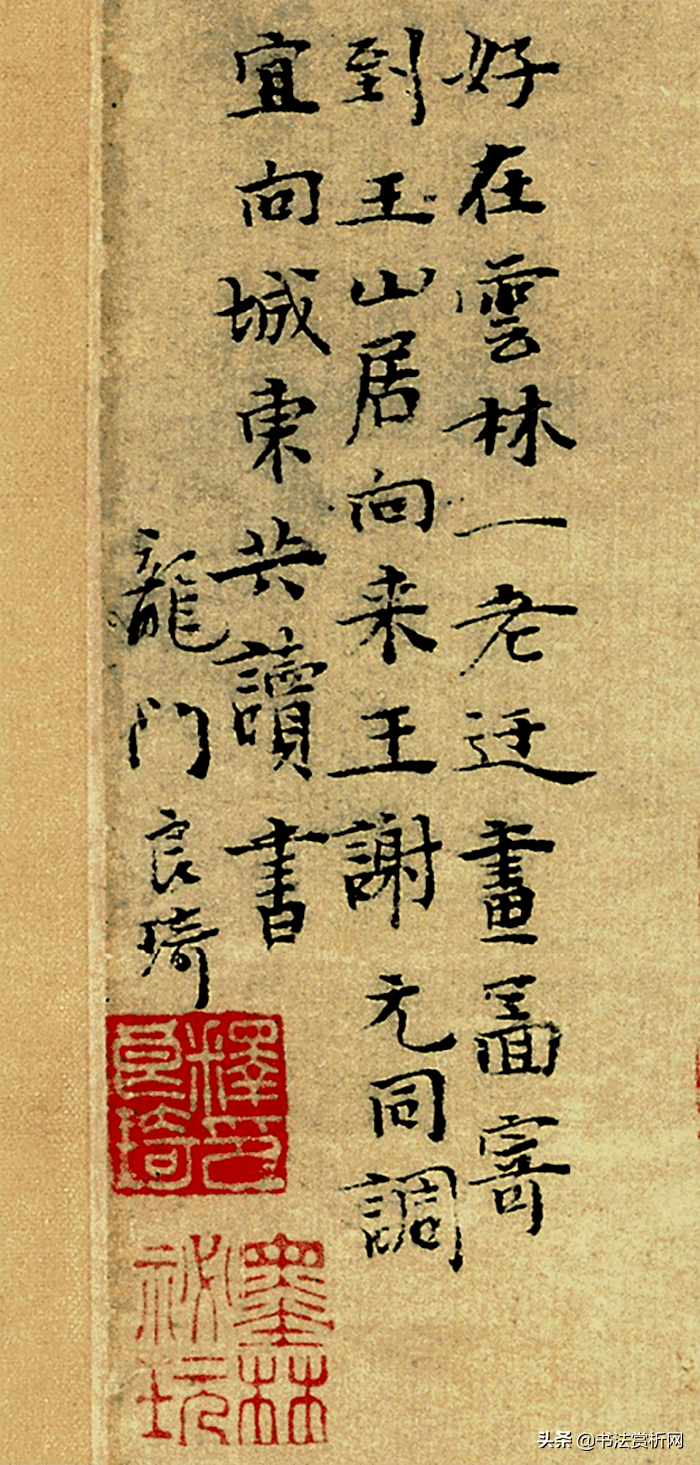 好在雲林一老迂畫圖寄
到玉山居向来王謝元同調
宜向城東共讀書
龍門良琦
釋良琦印
墨林祕玩
头条 @书法赏析网